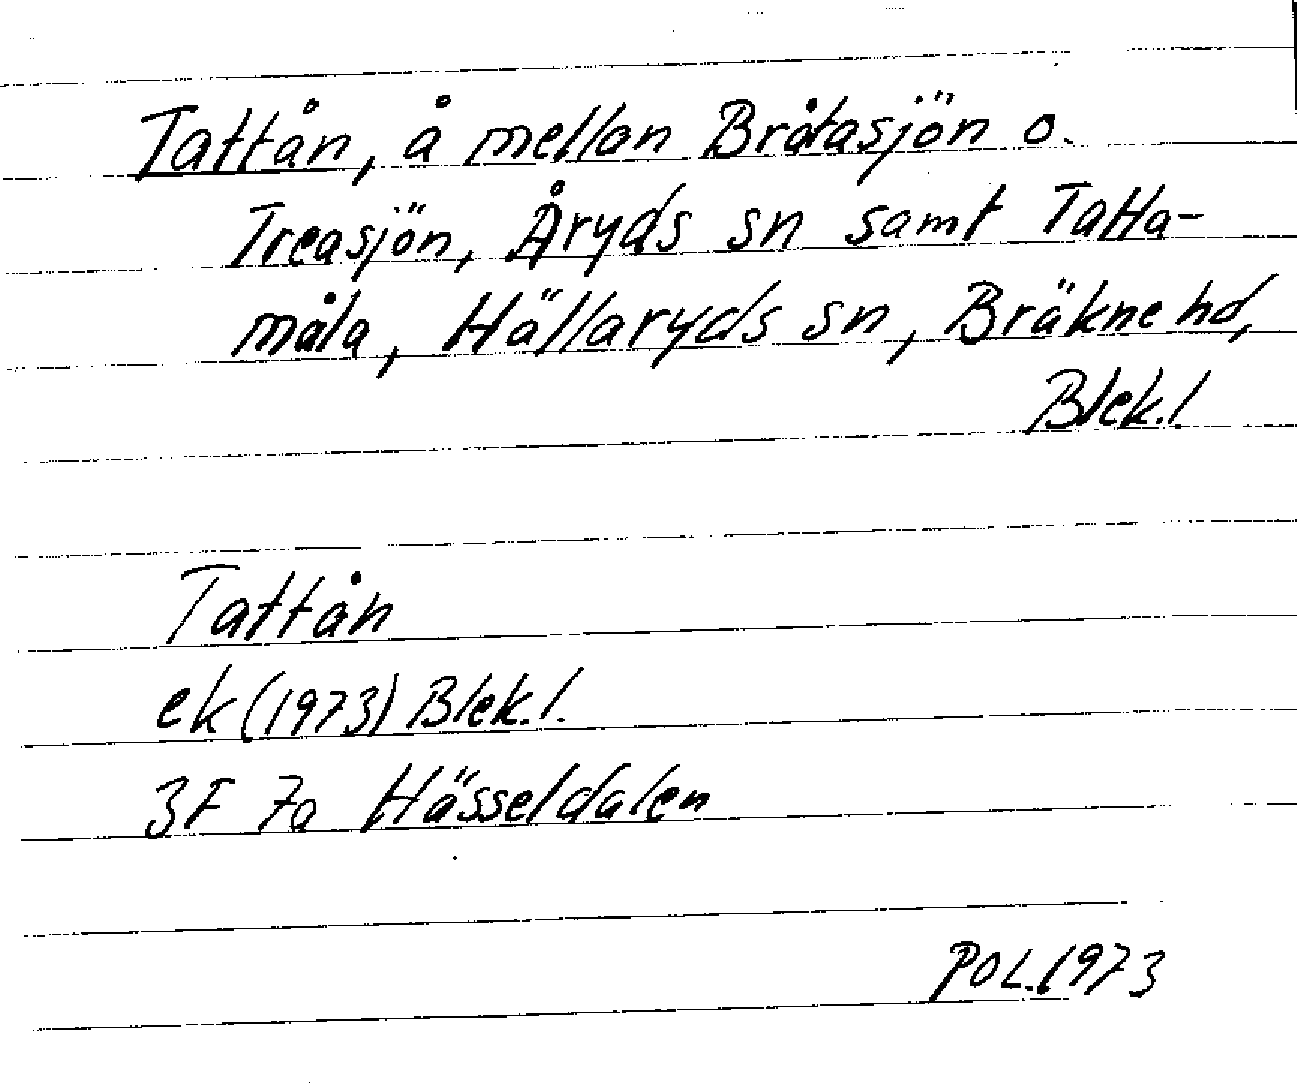 Tattån, å mellan Bråtasjön o.
Treasjön, Åryds sn samt Tatta-
måla, Hällaryds sn, Bräkne hd,
Blek.l.
Tattån
ek (1973) Blek.l.
3F 7a Hässeldalen
POL.1973